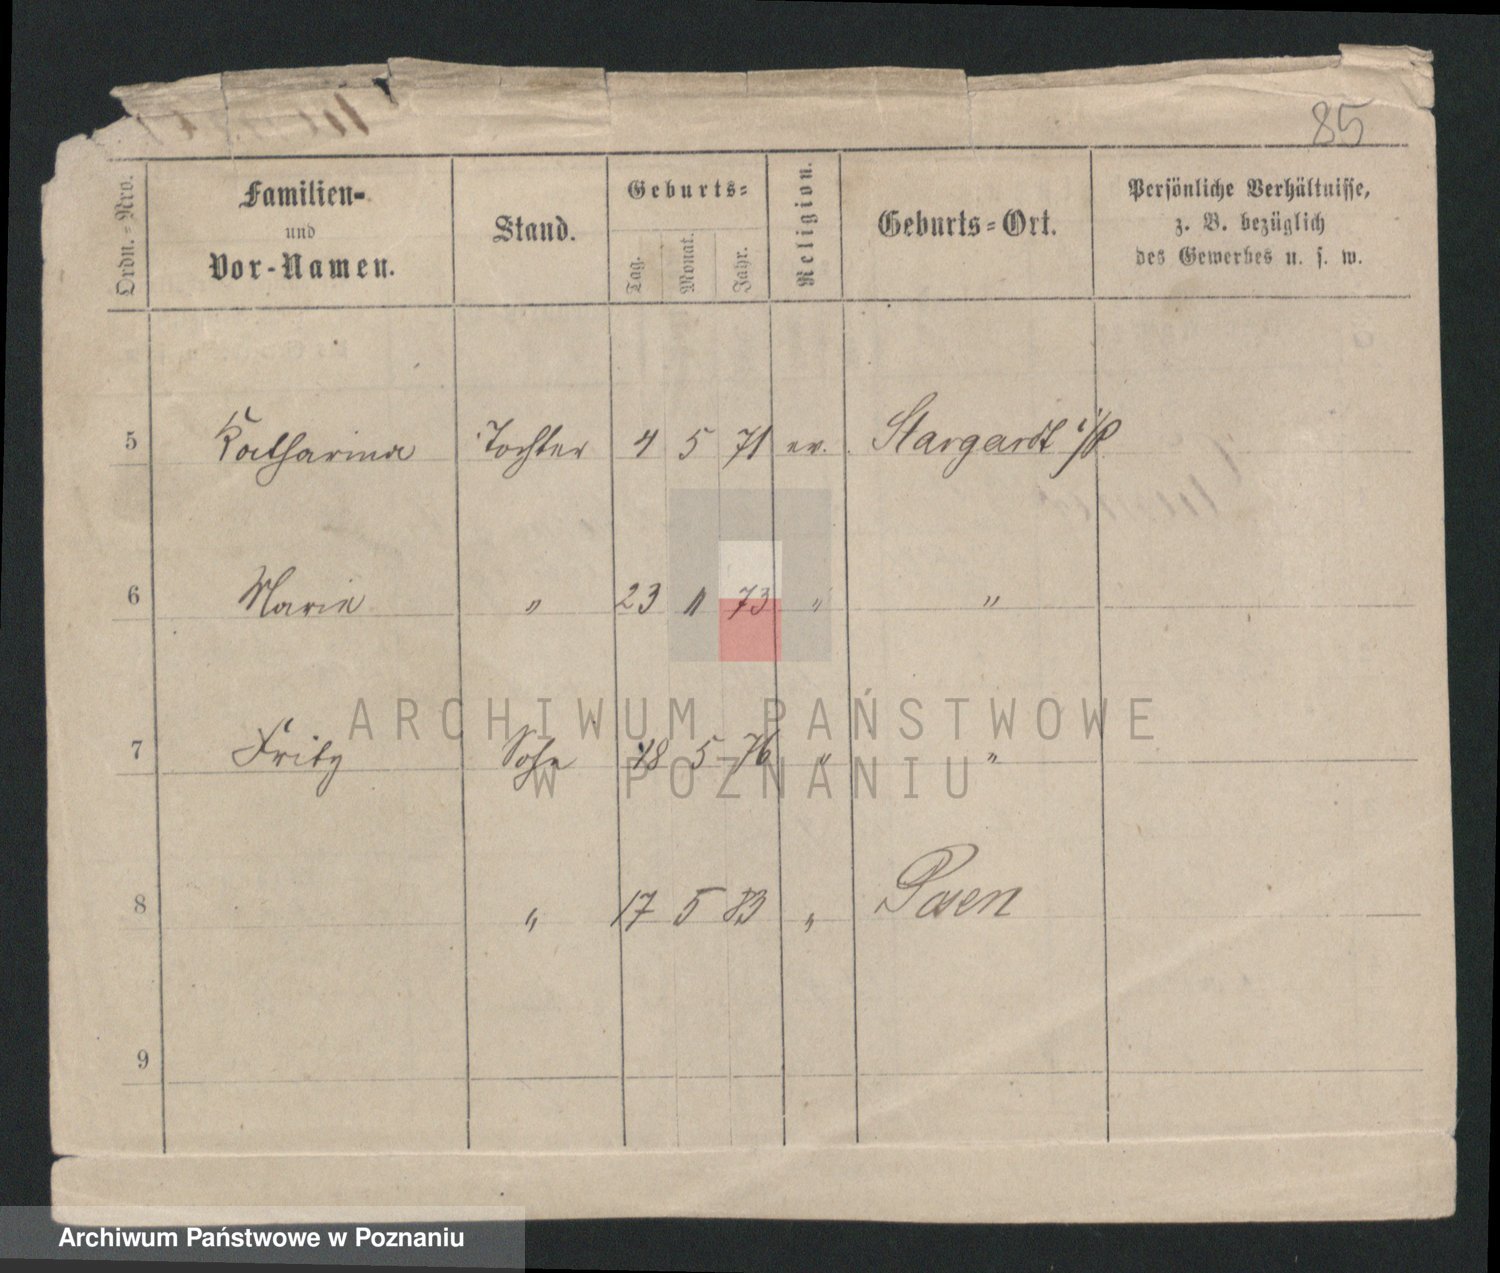 85
Ordn.-Nro.
Familien-
und
Vor-Namen.
Stand.
Geburts-
Tag.
Monat.
Jahr.
Religion.
Geburts-Ort.
Persönliche Verhältnisse,
z. B. bezüglich
des Gewerbes u. s. w.
5 Katharina Tochter 4 5 71 ev. Stargardt i/P
6 Marie " 23 11 73 " "
7 Fritz Sohn 18 5 76 " "
8 " 17 5 83 " Posen
9
ARCHIWUM PAŃSTWOWE
W POZNANIU
Archiwum Państwowe w Poznaniu